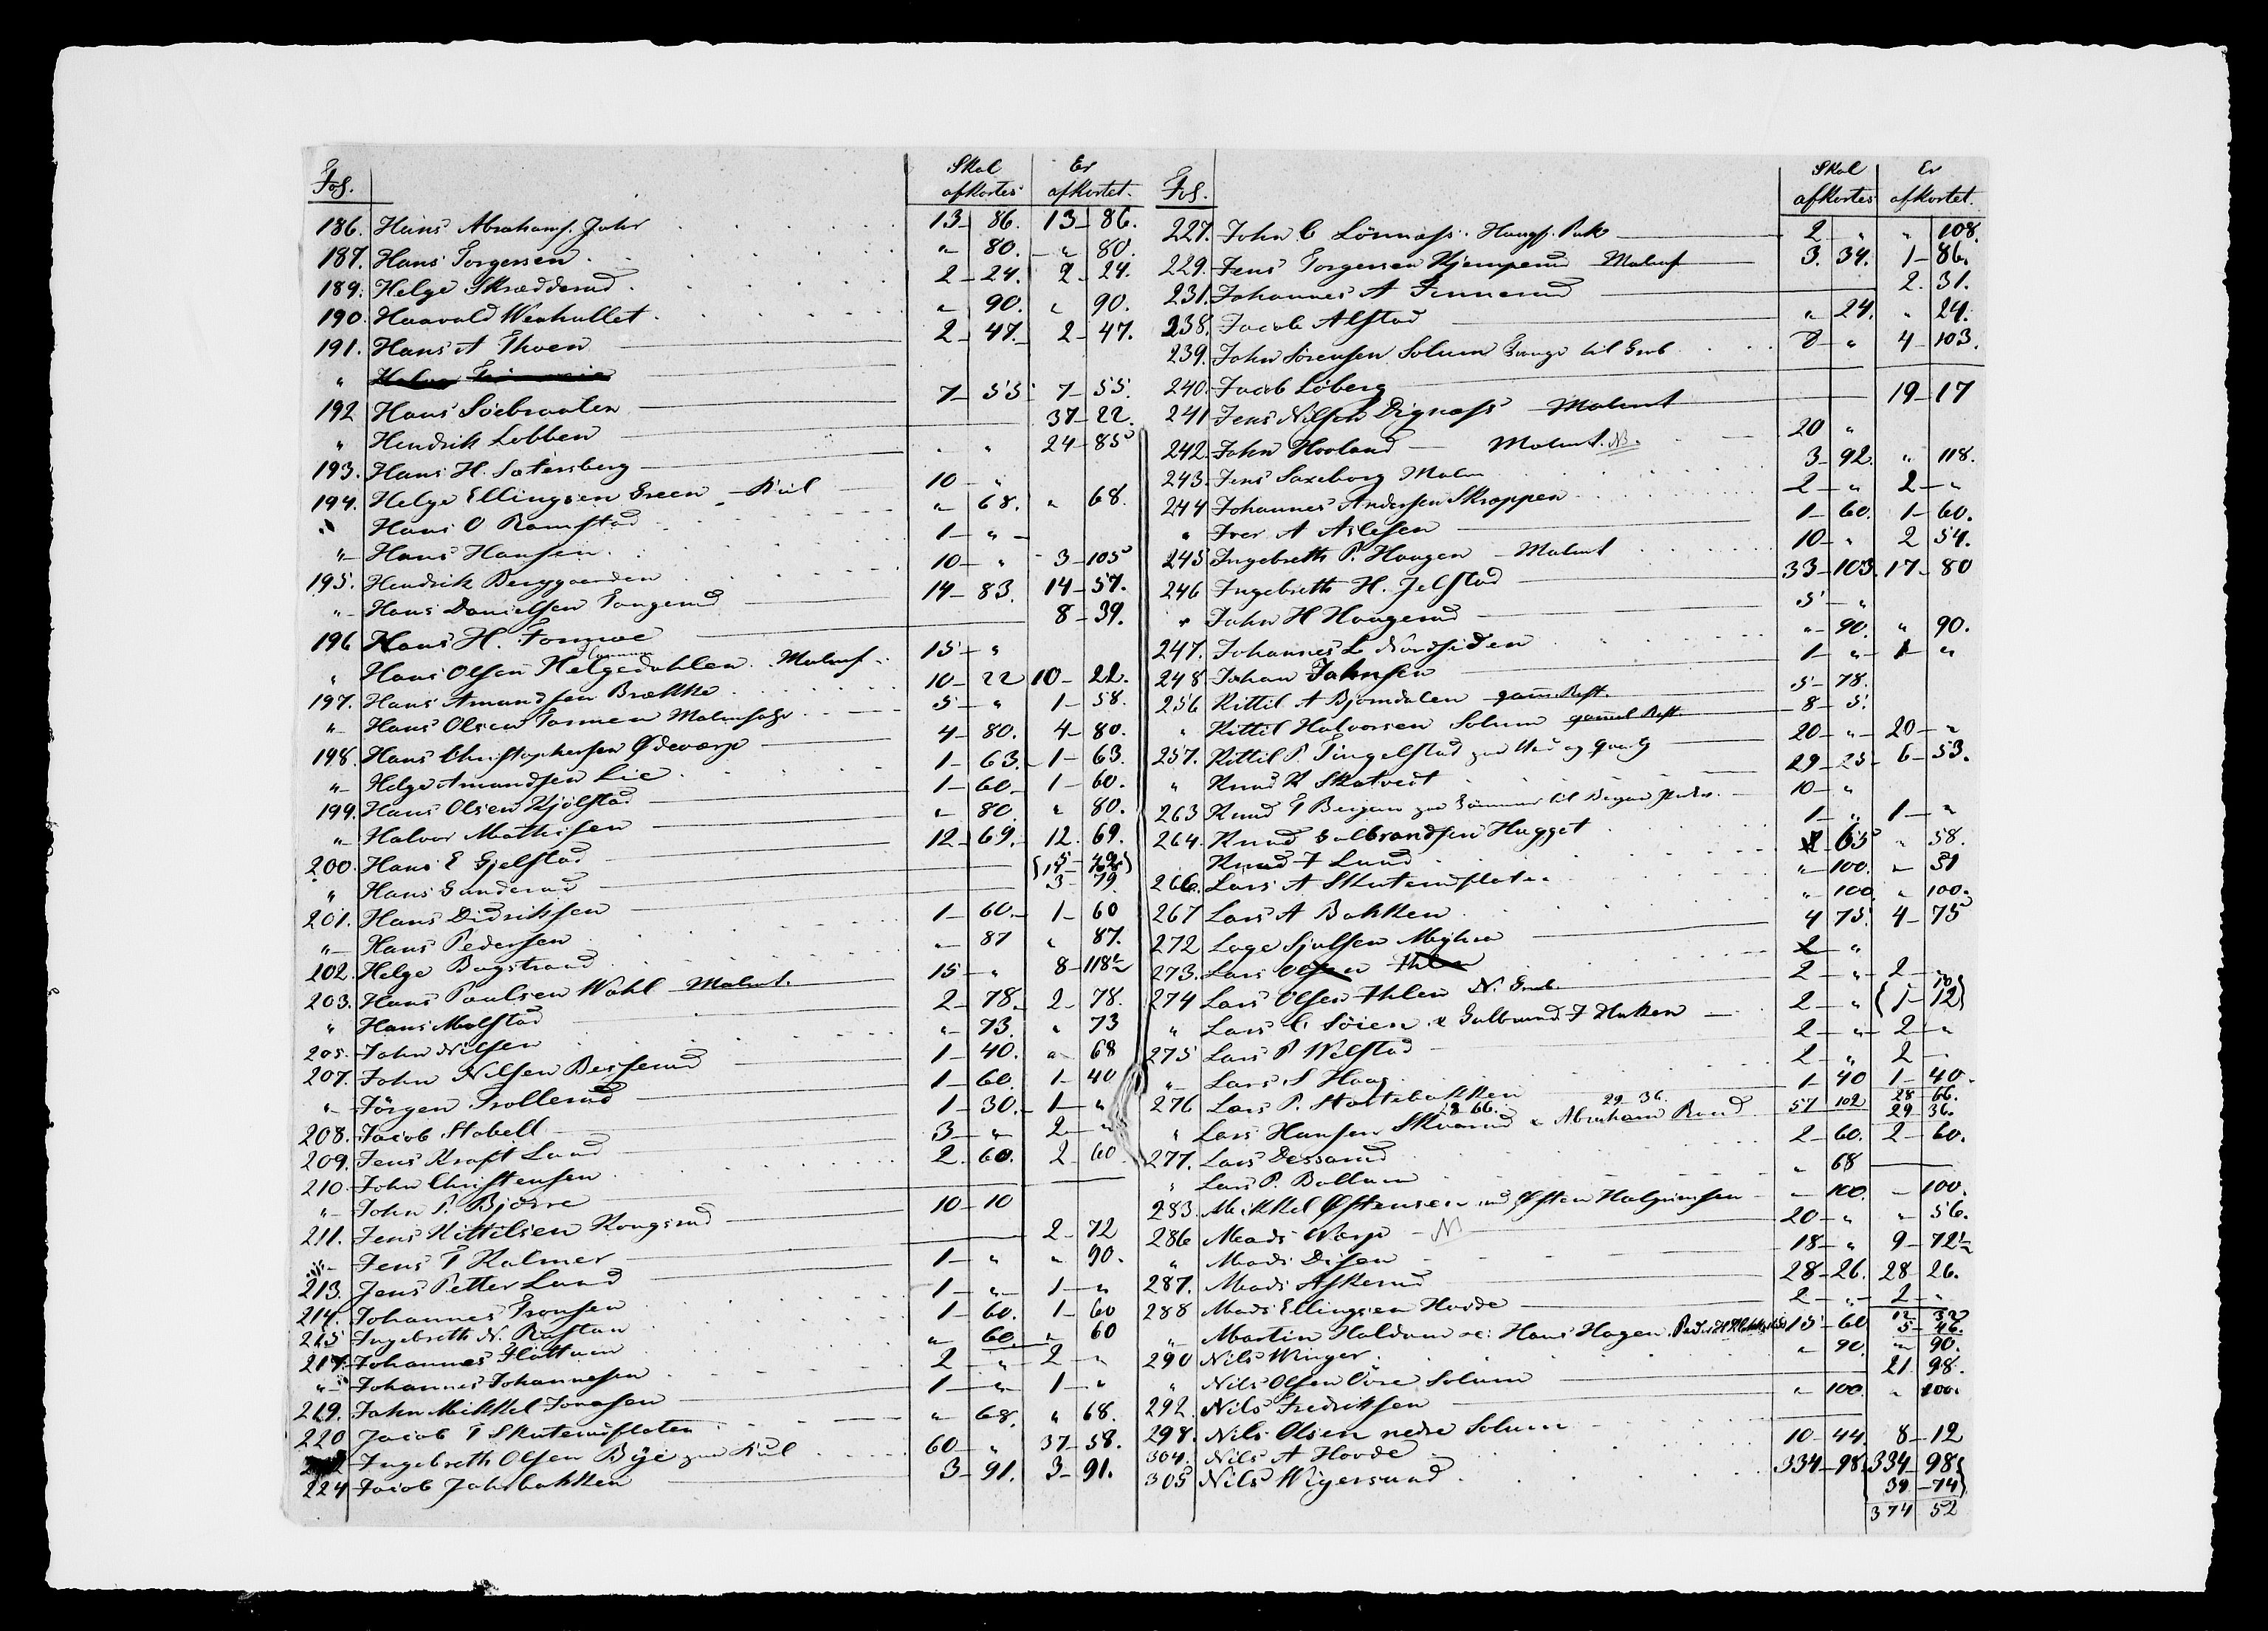 Fol. Skal afkortes Er afkortet.
186. Hans Abrahams. Jahr 13 - 86. 13 - 86.
187. Hans Torgersen " 80. " 80.
189. Helge Skrædderud 2 - 24. 2 - 24.
190. Haavald Weahullet " 90. " 90.
191. Hans A Thoen 2 - 47. 2 - 47.
"
192 Hans Söebraaten 7 - 55 7 - 55.
" Hendrik Lobben 37 - 22.
193. Hans H. Satersberg " " 24 - 85
194. Helge Ellingsen Green - Kul 10 - "
" Hans O Ramstad " 68. " 68.
" Hans Hansen 1 - "
195. Hendrik Berggaarden 10 - " 3 - 105
" Hans Danielsen Tangerud 14 - 83. 14 - 57.
196 Hans H. 8 - 39.
" Hans Olsen Helgedahlen. Malmf. 15 - "
197. Hans Amundsen Brække 10 - 22 10 - 22.
" Hans Olsen Tormen 5 - " 1 - 58.
198. Hans Christophersen Ødevarp 4 - 80. 4 - 80.
" Helge Amundsen Lie 1 - 63. 1 - 63.
199. Hans Olsen Kjölstad 1 - 60 1 - 60.
" Halvor Mathisen " 80. " 80.
200. Hans E Gjelstad 12 - 69. 12. 69.
" Hans Gunderud
201. Hans Didriksen 3 - 79
" Hans Pedersen 1 - 60 1 - 60
202. Helge Bagstrand " 87 " 87.
203. Hans Paulsen Wahl - Malmt. 15 - " 8 - 118½
" Hans Molstad 2 - 78. 2 - 78.
205. John Nilsen " 73. " 73
207. John Nilsen Besserud 1 - 40. " 68
" Jörgen Trollerud 1 - 60. 1 - 40
208. Jacob Stabell 1 - 30. 1 - "
209. Jens Kraft Lund 3 - " 2 - "
210. John Christensen 2. 60. 2 - 60
" John P. Bjórre
211. Jens Kittilsen Kongsrud 10 - 10
" Jens T Kalmer 2 - 72
213. Jens Petter Lund 1 - " " 90.
214. Johannes Tronsen 1 - " 1 - "
215 Ingebreth N. Rustan 1 - 60. 1 - 60
217. Johannes Flöttum " 60 " 60
" Johannes Johannesen 2 - " 2 - "
219. John Mikkel Jonasen 1 - " 1 - "
220 Jacob T Skuterudflaten " 68. " 68.
Ingebreth Olsen Bye 60 - " 37 - 58.
224 Jacob Jahrbakken 3 - 91. 3 - 91.
Fol. Skal afkortes Er afkortet.
227. John C Lönnass. 2 " " 108.
229. Jens Torgersen Kjemperud Malmf 3. 34. 1 - 86.
231. Johannes A Finnerud 2. 31.
238. Jacob Alstad " 24. " 24.
239. John Sörensen Solum Tange til Grub 8 - " 4 - 103.
240. Jacob Löberg
241 Jens Nilsen Dignass - Malmt 19 - 17
242. John Hovland - Malmt. NB. 20 "
243. Jens Saxeborg Malm 3 - 92. " 118.
244 Johannes Andersen Skroppen 2 - " 2 - "
" Iver A Aslesen 1 - 60. 1 - 60.
245 Ingebreth P. Haagen - Malmt 10 - " 2 54.
246 Ingebreth H. Jelstad 33 - 103. 17 - 80
" John H Haagerud 5 - "
247. Johannes L Nordsiden " 90. " 90.
248 Johan Johnsen 1 - " 1 - "
256 Kittil A Bjorndalen gam. Rest. 5 - 78.
" Kittil Halvorsen Solum gamel Rest 8 - 5.
257. Kittil P. Tingelstad 20 - " 20 - "
" Knud K Skatvedt 29 - 25 - 6 - 53.
263 Knud T Bergan 10 - "
264. Knud Gulbrandsen Hugget 1 - " 1 - "
" Knud F Lund 65 " 58.
266. Lars A Skuterudflaten " 100. " 51
267 Lars A Bakken " 100 " 100.
272 Lage Sjulsen Myhra 4 75. 4 - 75
273. Lars Olsen Ihlen 2 - "
274 Lars Olsen Ihlen N. Grub. 2 - " 2 - "
" Lars C. Söien & Gulbrand F Hakken 2 - " (1 - 12)
275 Lars P Wilstad 2 - " 2 - "
" Lars S Haag 2 - " 2 -
276 Lars P. Stortebakken 1 - 40 1 - 40.
" Lars Hansen Skuerud 28 66. & Abraham Rund 29 36. 57 102 28 66. 29 36.
277. Lars Dessarud 2 - 60. 2 - 60.
" Lars P. Bollum " 68
283. Mikkel Østensen Østen Halgrimsen " 100. " 100.
286 Mads Warp - N 20 - " " 56.
" Mads Disen 18 - " 9 - 72½
287. Mads Askerud 28 - 26. 28 26.
288 Mads Ellingsen Hovde 2 - " 2 - "
" Martin Haldum &: Hans Hagen. 15 - 60 12 32 3 - 46.
290 Nils Winger " 90. " 90.
" Nils Olsen Övre Solum 21 98.
292. Nils Fredriksen " 100. " 100.
298. Nils Olsen nedre Solum
304. Nils A Hovde 10 - 44. 8 - 12
305 Nils Wigersund 334 - 98. 334 - 98
39 - 74
374 52